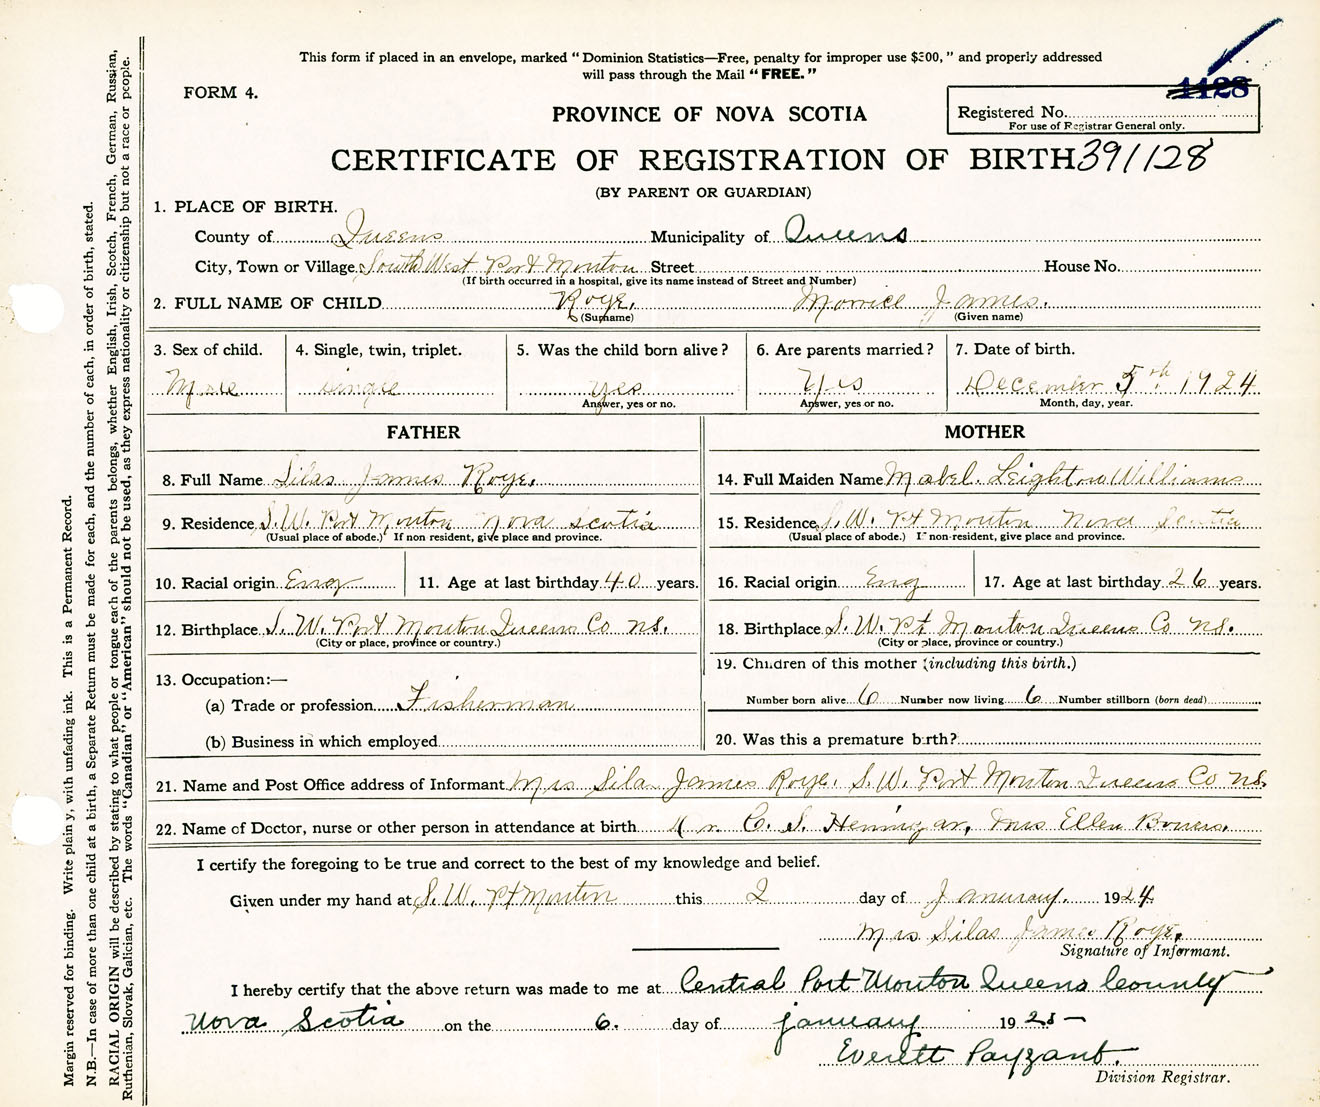 This form if placed in an envelope, marked “Dominion Statistics—Free, penalty for improper use $300,” and properly addressed
will pass through the Mail “FREE.”
FORM 4.
1128
PROVINCE OF NOVA SCOTIA
Registered No.
For use of Registrar General only.
CERTIFICATE OF REGISTRATION OF BIRTH 391128
(BY PARENT OR GUARDIAN)
1. PLACE OF BIRTH.
County of Queens Municipality of Queens
City, Town or Village South West Port Mouton Street House No.
(If birth occurred in a hospital, give its name instead of Street and Number)
2. FULL NAME OF CHILD Roye, James.
(Surname) (Given name)
3. Sex of child. 4. Single, twin, triplet. 5. Was the child born alive? 6. Are parents married? 7. Date of birth.
Male single yes Yes December 5th 1924
Answer, yes or no. Answer, yes or no. Month, day, year.
FATHER MOTHER
8. Full Name Silas James Roye. 14. Full Maiden Name Mabel. Leighton Williams
9. Residence S.W. Port Mouton Nova Scotia 15. Residence S.W. Pt Mouton Nova Scotia
(Usual place of abode.) If non resident, give place and province. (Usual place of abode.) If non-resident, give place and province.
10. Racial origin Eng 11. Age at last birthday 40 years. 16. Racial origin Eng 17. Age at last birthday 26 years.
12. Birthplace S.W. Port Mouton Queens Co N.S. 18. Birthplace S.W. Pt Mouton Queens Co N.S.
(City or place, province or country.) (City or place, province or country.)
13. Occupation:— 19. Children of this mother (including this birth.)
(a) Trade or profession Fisherman Number born alive 6 Number now living 6 Number stillborn (born dead)
(b) Business in which employed 20. Was this a premature birth?
21. Name and Post Office address of Informant Mrs Silas James Roye. S.W. Port Mouton Queens Co N.S.
22. Name of Doctor, nurse or other person in attendance at birth C. S. Hennigar, Mrs Ellen Bowers.
I certify the foregoing to be true and correct to the best of my knowledge and belief.
Given under my hand at S.W. Pt Mouton this 2 day of January. 1924
Mrs Silas James Roye.
Signature of Informant.
I hereby certify that the above return was made to me at Central Port Mouton Queens County
Nova Scotia on the 6. day of january 1925
Everett Payzant.
Division Registrar.
Margin reserved for binding. Write plainly, with unfading ink. This is a Permanent Record.
N.B.—In case of more than one child at a birth, a Separate Return must be made for each, and the number of each, in order of birth, stated.
RACIAL ORIGIN will be described by stating to what people or tongue each of the parents belongs, whether English, Irish, Scotch, French, German, Russian,
Ruthenian, Slovak, Galician, etc. The words “Canadian” or “American” should not be used, as they express nationality or citizenship but not a race or people.